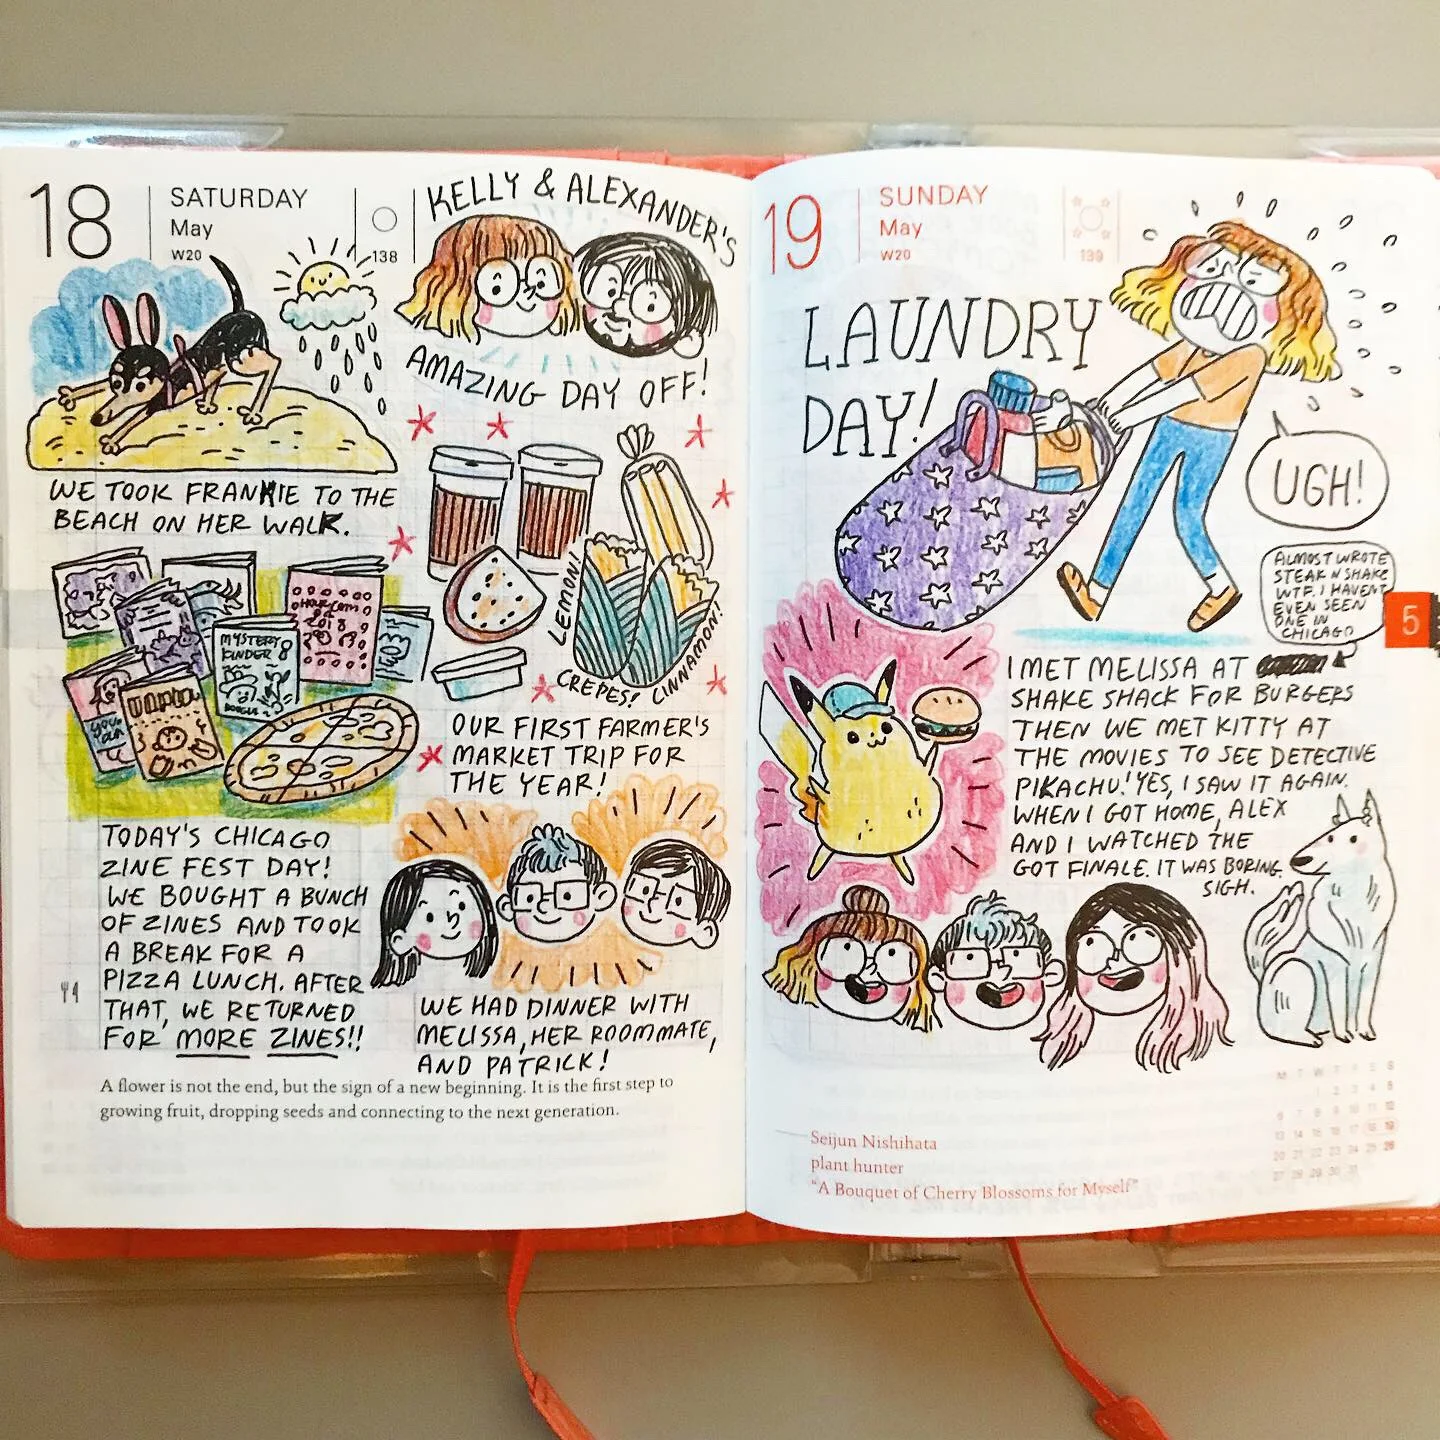 18
SATURDAY
May
W20
138
KELLY & ALEXANDER'S
AMAZING DAY OFF!
WE TOOK FRANKIE TO THE
BEACH ON HER WALK.
MYSTERY
KINDER 8
2018
LEMON!
CREPES!
CINNAMON!
OUR FIRST FARMER'S
MARKET TRIP FOR
THE YEAR!
TODAY'S CHICAGO
ZINE FEST DAY!
WE BOUGHT A BUNCH
OF ZINES AND TOOK
A BREAK FOR A
PIZZA LUNCH. AFTER
THAT, WE RETURNED
FOR MORE ZINES!!
WE HAD DINNER WITH
MELISSA, HER ROOMMATE,
AND PATRICK!
A flower is not the end, but the sign of a new beginning. It is the first step to
growing fruit, dropping seeds and connecting to the next generation.
19
SUNDAY
May
W20
139
LAUNDRY
DAY!
UGH!
ALMOST WROTE
STEAK N SHAKE
WTF. I HAVEN'T
EVEN SEEN
ONE IN
CHICAGO
5
I MET MELISSA AT
SHAKE SHACK FOR BURGERS
THEN WE MET KITTY AT
THE MOVIES TO SEE DETECTIVE
PIKACHU! YES, I SAW IT AGAIN.
WHEN I GOT HOME, ALEX
AND I WATCHED THE
GOT FINALE. IT WAS BORING.
SIGH.
M T W T F S S
1 2 3 4 5
6 7 8 9 10 11 12
13 14 15 16 17 18 19
20 21 22 23 24 25 26
27 28 29 30 31
Seijun Nishihata
plant hunter
"A Bouquet of Cherry Blossoms for Myself"